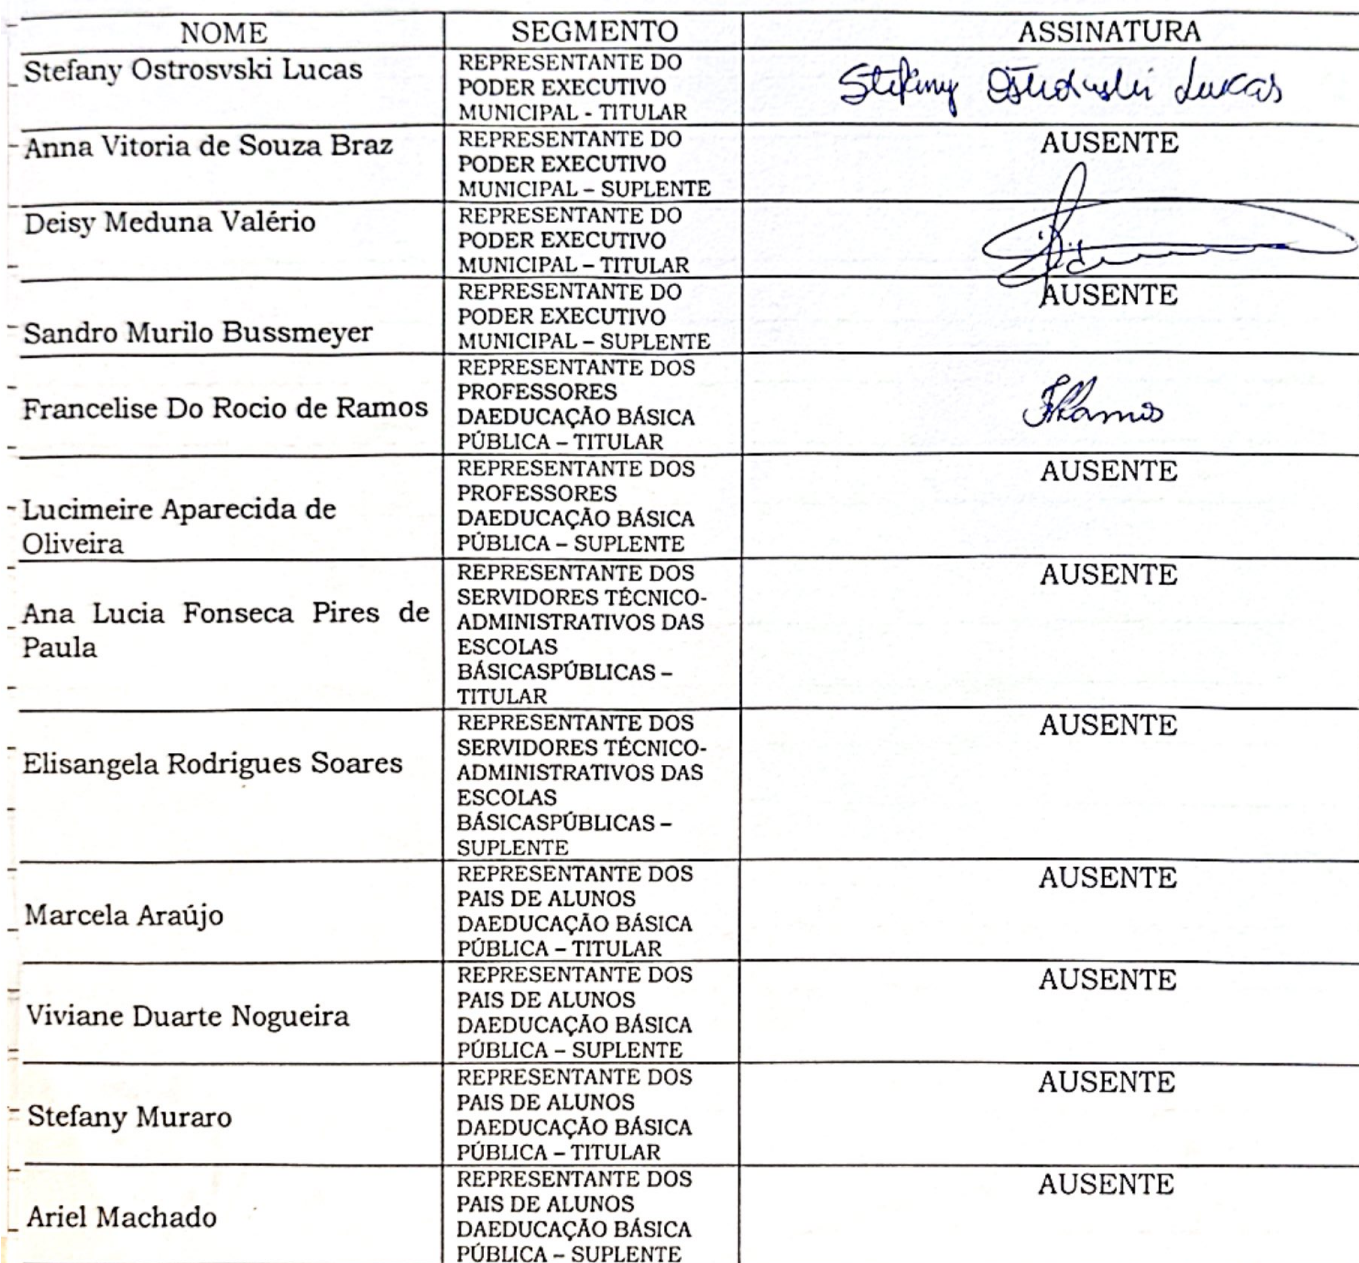 NOME SEGMENTO ASSINATURA
Stefany Ostrosvski Lucas
REPRESENTANTE DO
PODER EXECUTIVO
MUNICIPAL - TITULAR
Lucas
Anna Vitoria de Souza Braz
REPRESENTANTE DO
PODER EXECUTIVO
MUNICIPAL – SUPLENTE
AUSENTE
Deisy Meduna Valério
REPRESENTANTE DO
PODER EXECUTIVO
MUNICIPAL – TITULAR
Sandro Murilo Bussmeyer
REPRESENTANTE DO
PODER EXECUTIVO
MUNICIPAL – SUPLENTE
AUSENTE
Francelise Do Rocio de Ramos
REPRESENTANTE DOS
PROFESSORES
DAEDUCAÇÃO BÁSICA
PÚBLICA – TITULAR
FRamos
Lucimeire Aparecida de
Oliveira
REPRESENTANTE DOS
PROFESSORES
DAEDUCAÇÃO BÁSICA
PÚBLICA – SUPLENTE
AUSENTE
Ana Lucia Fonseca Pires de
Paula
REPRESENTANTE DOS
SERVIDORES TÉCNICO-
ADMINISTRATIVOS DAS
ESCOLAS
BÁSICASPÚBLICAS –
TITULAR
AUSENTE
Elisangela Rodrigues Soares
REPRESENTANTE DOS
SERVIDORES TÉCNICO-
ADMINISTRATIVOS DAS
ESCOLAS
BÁSICASPÚBLICAS –
SUPLENTE
AUSENTE
Marcela Araújo
REPRESENTANTE DOS
PAIS DE ALUNOS
DAEDUCAÇÃO BÁSICA
PÚBLICA – TITULAR
AUSENTE
Viviane Duarte Nogueira
REPRESENTANTE DOS
PAIS DE ALUNOS
DAEDUCAÇÃO BÁSICA
PÚBLICA – SUPLENTE
AUSENTE
Stefany Muraro
REPRESENTANTE DOS
PAIS DE ALUNOS
DAEDUCAÇÃO BÁSICA
PÚBLICA – TITULAR
AUSENTE
Ariel Machado
REPRESENTANTE DOS
PAIS DE ALUNOS
DAEDUCAÇÃO BÁSICA
PÚBLICA – SUPLENTE
AUSENTE